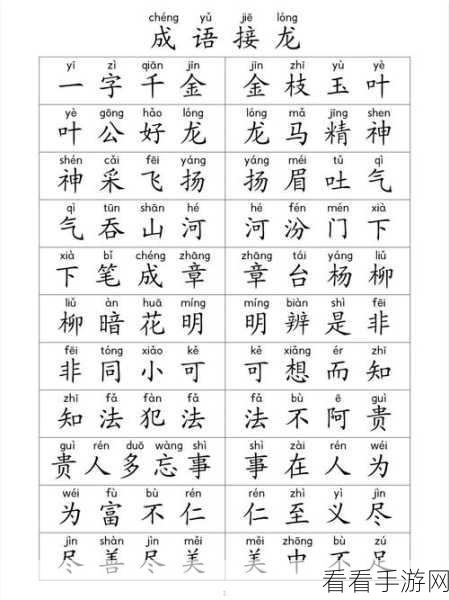 chéng yǔ jiē lóng
成语接龙
yī zì qiān jīn jīn zhī yù yè
一字千金 金枝玉叶
yè gōng hào lóng lóng mǎ jīng shen
叶公好龙 龙马精神
shén cǎi fēi yáng yáng méi tǔ qì
神采飞扬 扬眉吐气
qì tūn shān hé hé fén mén xià
气吞山河 河汾门下
xià bǐ chéng zhāng zhāng tái yáng liǔ
下笔成章 章台杨柳
liǔ àn huā míng míng biàn shì fēi
柳暗花明 明辨是非
fēi tóng xiǎo kě kě xiǎng ér zhī
非同小可 可想而知
zhī fǎ fàn fǎ fǎ bù ē guì
知法犯法 法不阿贵
guì rén duō wàng shì shì zài rén wéi
贵人多忘事 事在人为
wéi fù bù rén rén zhì yì jìn
为富不仁 仁至义尽
jìn shàn jìn měi měi zhōng bù zú
尽善尽美 美中不足
看看手游网